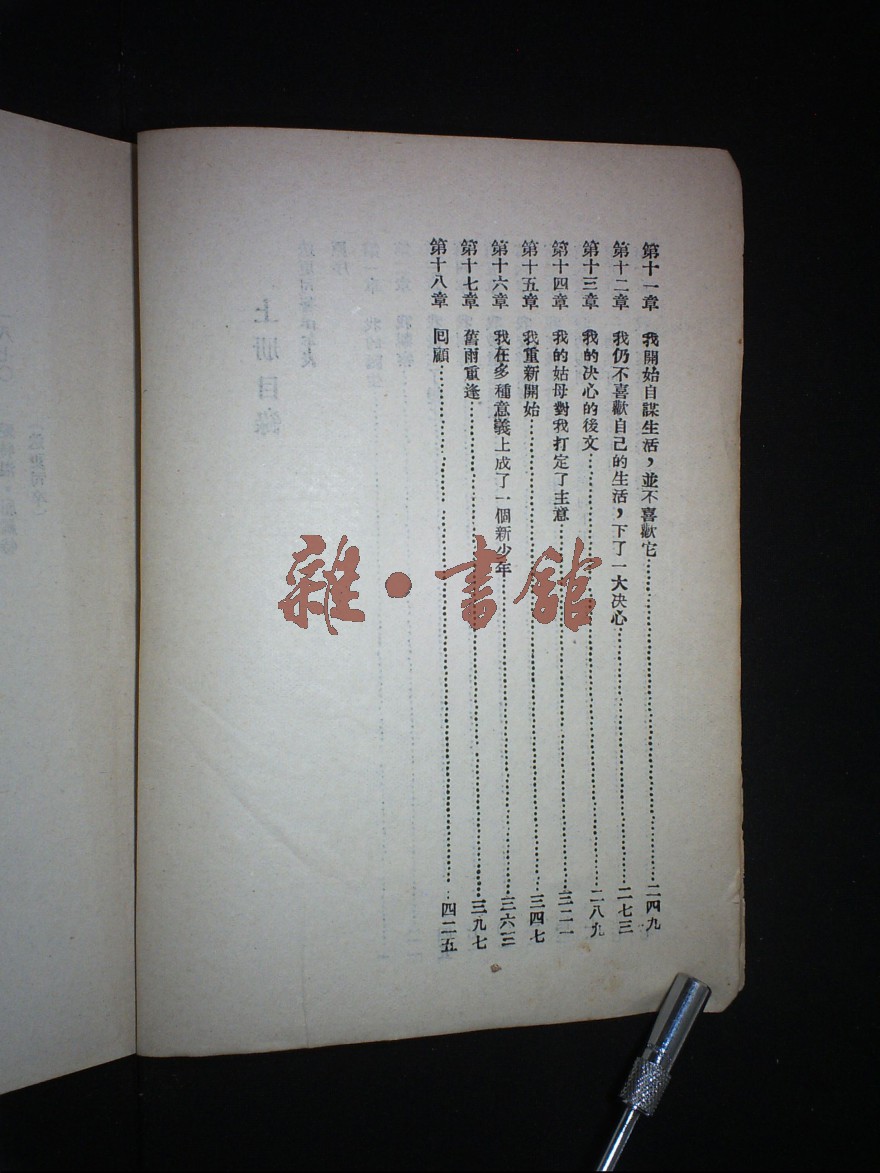 第十一章　我開始自謀生活，並不喜歡它……二四九
第十二章　我仍不喜歡自己的生活，下了一大决心……二七三
第十三章　我的决心的後文……二八九
第十四章　我的姑母對我打定了主意……三二一
第十五章　我重新開始……三四七
第十六章　我在多種意義上成了一個新少年……三六三
第十七章　舊雨重逢……三九七
第十八章　回顧……四二五
雜·書館